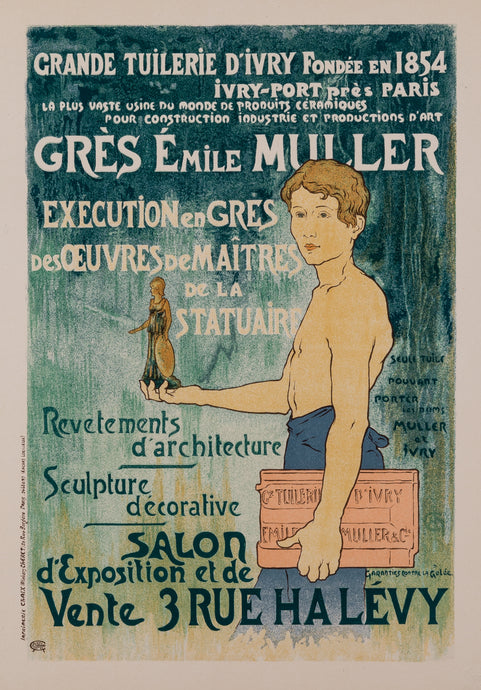 GRANDE TUILERIE D'IVRY FONDÉE EN 1854
IVRY-PORT près PARIS
LA PLUS VASTE USINE DU MONDE DE PRODUITS CÉRAMIQUES
POUR CONSTRUCTION INDUSTRIE ET PRODUCTIONS D'ART
GRÈS ÉMILE MULLER
EXECUTION en GRES
des ŒUVRES de MAÎTRES
DE LA
STATUAIRE
SEULE TUILE
POUVANT
PORTER
LES NOMS
MULLER
et
IVRY
Revetements
d'architecture
Sculpture
décorative
Gde TUILERIE D'IVRY
EMILE MULLER & Cie
SALON
d'Exposition et de
GARANTIES CONTRE LA GELÉE
Vente 3 RUE HALÉVY
IMPRIMERIE CHAIX